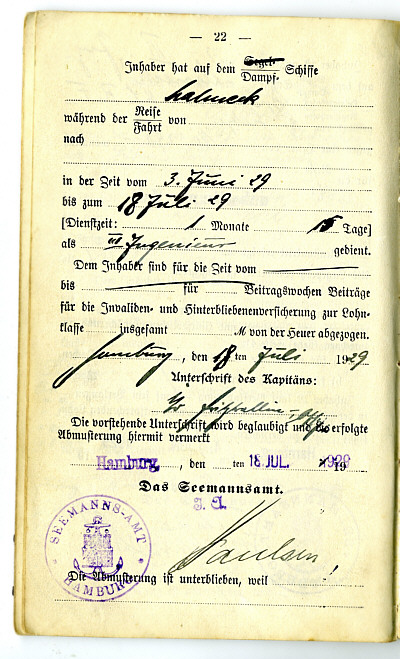 — 22 —
Inhaber hat auf dem Segel- Dampf- Schiffe
Lahneck
während der Reise Fahrt von
nach
in der Zeit vom 3. Juni 29
bis zum 18 Juli 29
[Dienstzeit: 1 Monate 15 Tage]
als III Ingenieur gedient.
Dem Inhaber sind für die Zeit vom
bis für Beitragswochen Beiträge
für die Invaliden- und Hinterbliebenenversicherung zur Lohn-
klasse insgesamt M von der Heuer abgezogen.
Hamburg, den 18 ten Juli 1929
Unterschrift des Kapitäns:
Die vorstehende Unterschrift wird beglaubigt und die erfolgte
Abmusterung hiermit vermerkt
Hamburg, den ten 18. JUL. 1929
Das Seemannsamt.
J. A.
Paulsen
SEEMANNS-AMT
HAMBURG
Die Abmusterung ist unterblieben, weil